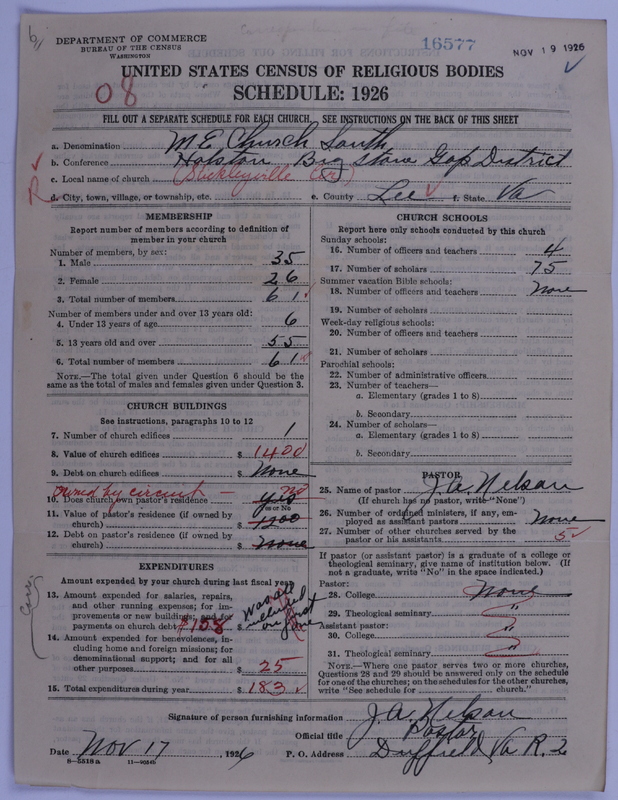 DEPARTMENT OF COMMERCE
BUREAU OF THE CENSUS
WASHINGTON
16577
NOV 19 1926
UNITED STATES CENSUS OF RELIGIOUS BODIES
08
SCHEDULE: 1926
FILL OUT A SEPARATE SCHEDULE FOR EACH CHURCH. SEE INSTRUCTIONS ON THE BACK OF THIS SHEET
a. Denomination M E Church South
b. Conference Holston Big Stone Gap District
c. Local name of church (Stickleyville Cir)
R d. City, town, village, or township, etc. e. County Lee f. State Va
MEMBERSHIP
Report number of members according to definition of
member in your church
Number of members, by sex:
1. Male 35
2. Female 26
3. Total number of members 61
Number of members under and over 13 years old:
4. Under 13 years of age 6
5. 13 years old and over 55
6. Total number of members 61
NOTE.—The total given under Question 6 should be
same as the total of males and females given under Question 3.
CHURCH BUILDINGS
See instructions, paragraphs 10 to 12
7. Number of church edifices 1
8. Value of church edifices $ 1400
9. Debt on church edifices $ None
owned by circuit — No
10. Does church own pastor's residence yes
Yes or No
11. Value of pastor's residence (if owned by
church) $ 1200
12. Debt on pastor's residence (if owned by
church) $ None
EXPENDITURES
Amount expended by your church during last fiscal year
13. Amount expended for salaries, repairs,
and other running expenses; for im-
provements or new buildings; and for
payments on church debt $158
was all
on first
one
14. Amount expended for benevolences, in-
cluding home and foreign missions; for
denominational support; and for all
other purposes $ 25
15. Total expenditures during year $ 183
CHURCH SCHOOLS
Report here only schools conducted by this church
Sunday schools:
16. Number of officers and teachers 4
17. Number of scholars 75
Summer vacation Bible schools:
18. Number of officers and teachers None
19. Number of scholars
Week-day religious schools:
20. Number of officers and teachers
21. Number of scholars
Parochial schools:
22. Number of administrative officers
23. Number of teachers—
a. Elementary (grades 1 to 8)
b. Secondary
24. Number of scholars—
a. Elementary (grades 1 to 8)
b. Secondary
PASTOR
25. Name of pastor J. A. Nelson
(If church has no pastor, write "None")
26. Number of ordained ministers, if any, em-
ployed as assistant pastors None
27. Number of other churches served by the
pastor or his assistants 5
If pastor (or assistant pastor) is a graduate of a college or
theological seminary, give name of institution below. (If
not a graduate, write "No" in the space indicated.)
Pastor:
28. College None
29. Theological seminary "
Assistant pastor:
30. College "
31. Theological seminary "
NOTE.—Where one pastor serves two or more churches,
Questions 28 and 29 should be answered only on the schedule
for one of the churches; on the schedules for the other churches,
write "See schedule for church."
Signature of person furnishing information J. A. Nelson
Official title Pastor
Date Nov 17, 1926 P. O. Address Duffield, Va R. 2
8—5518 a 11—9054b